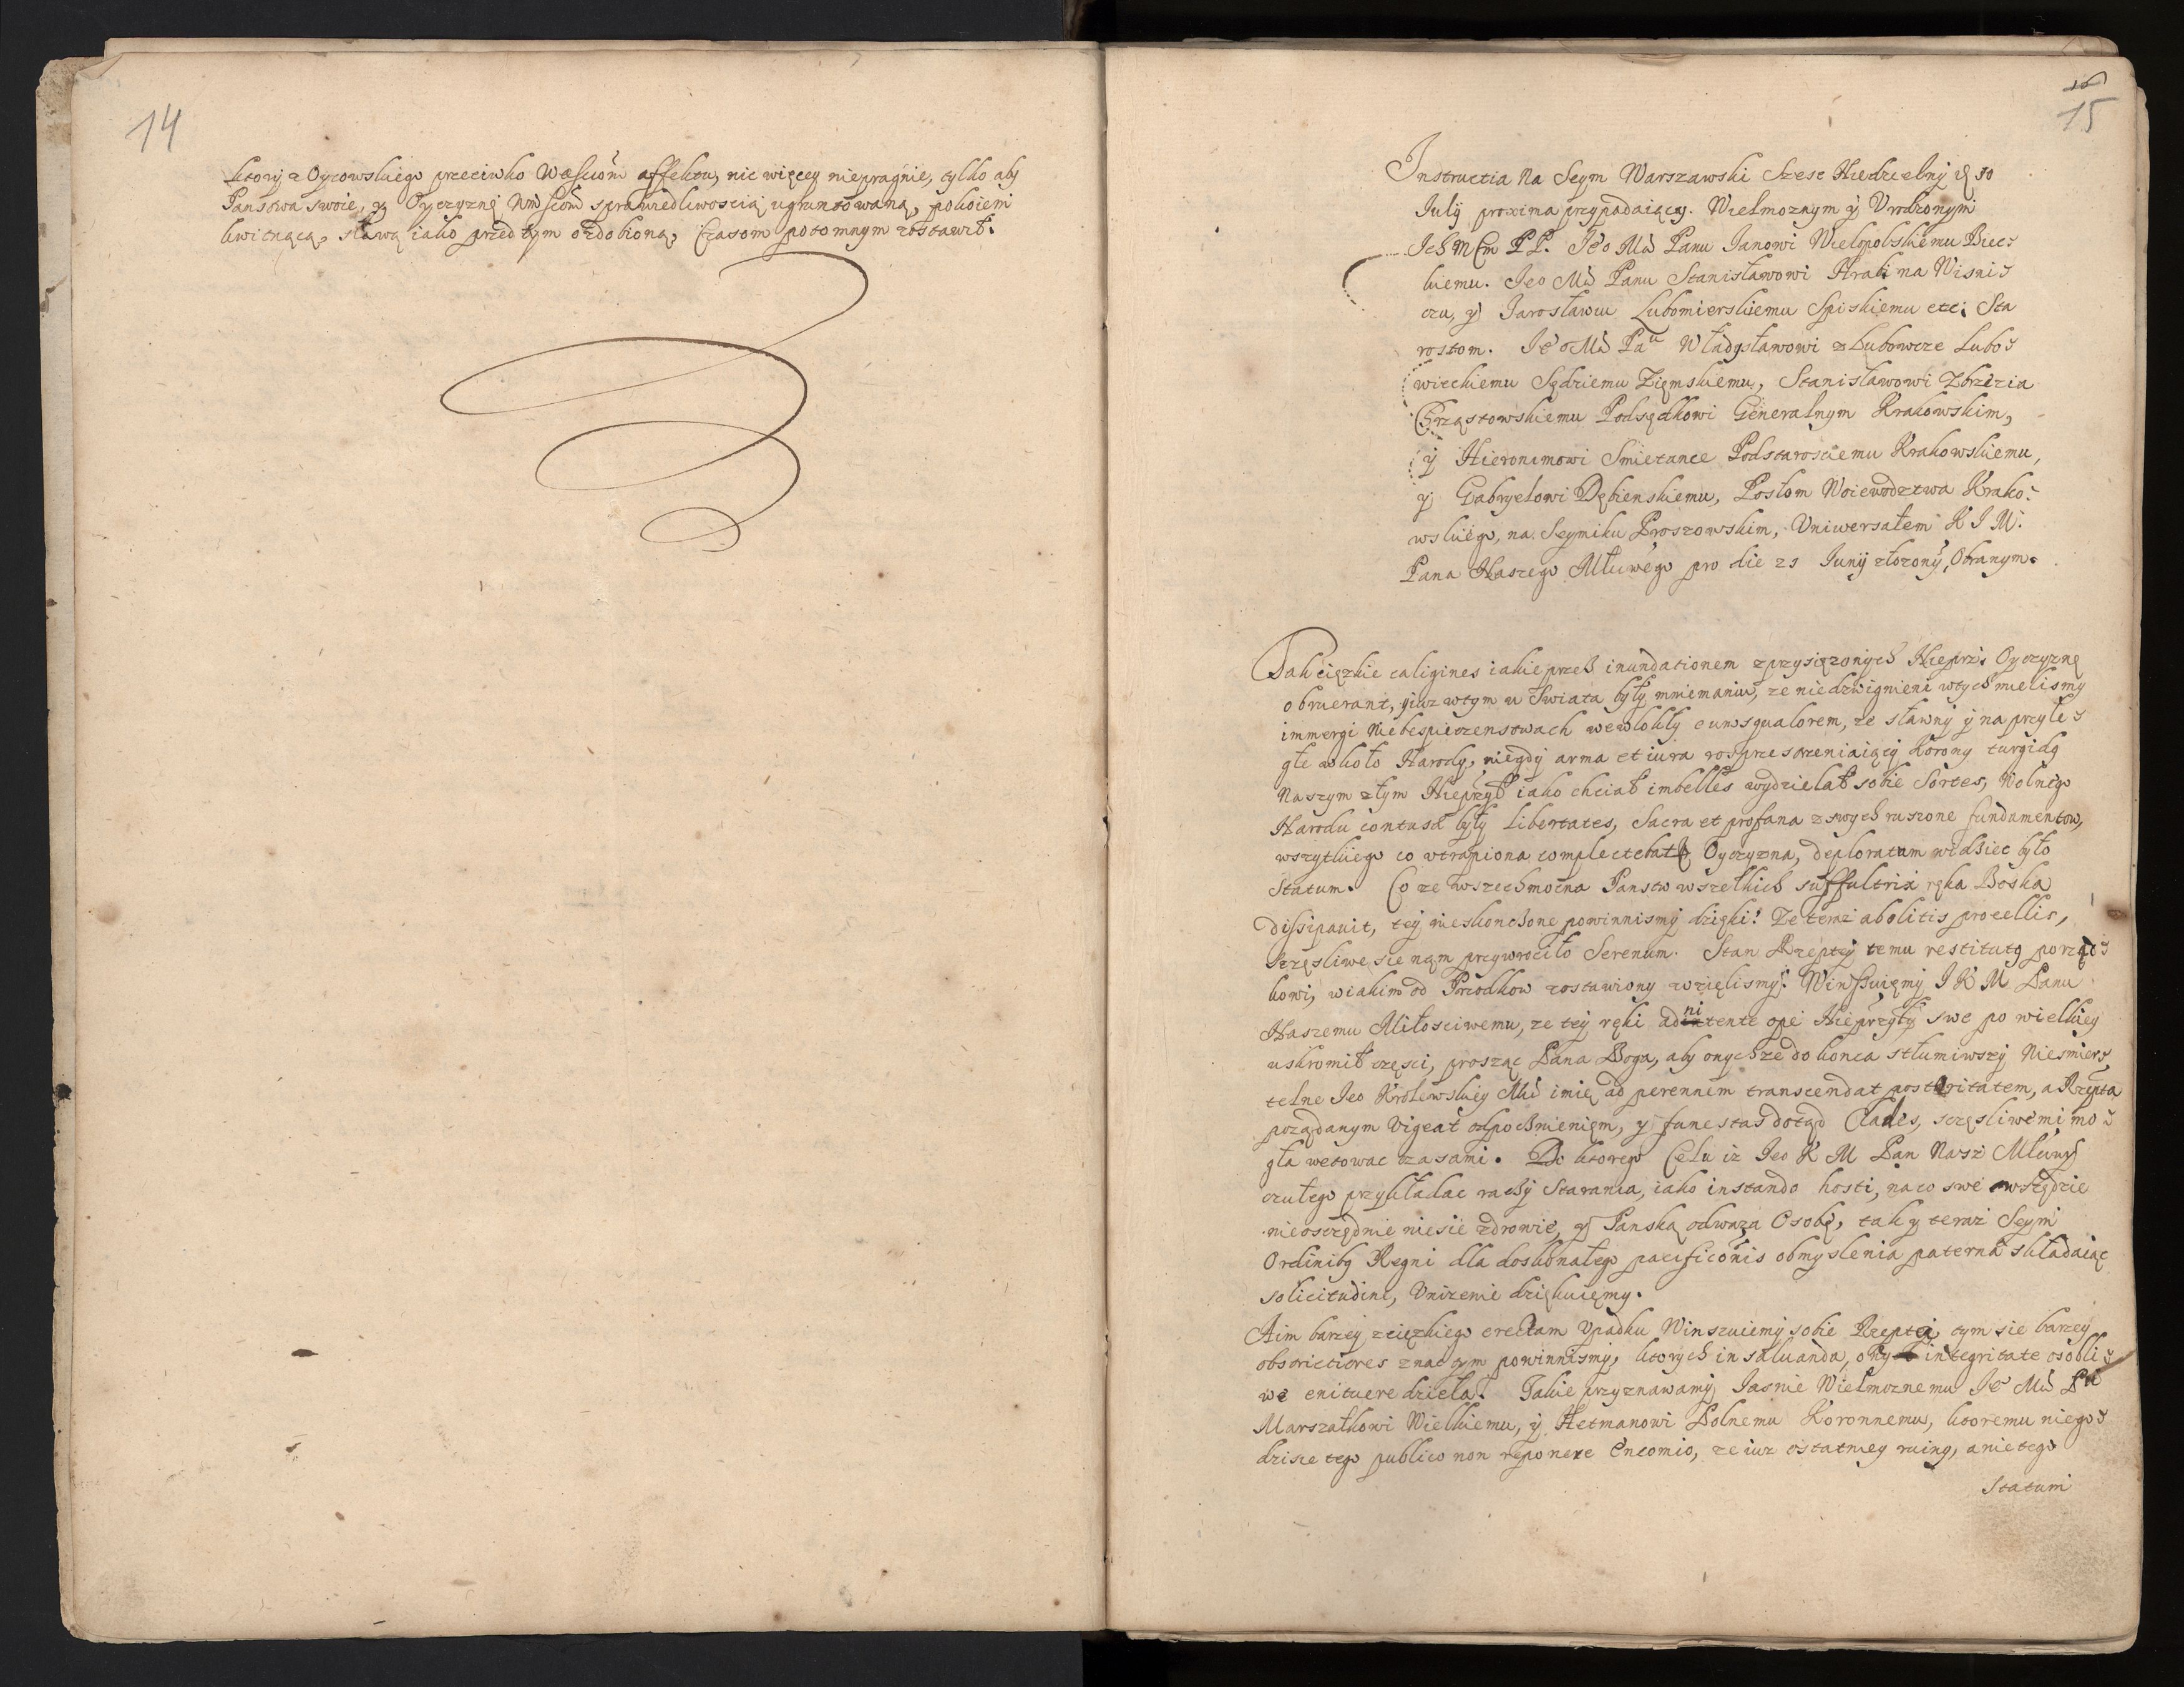 14
ktory z Oycowskiego przeciwko Waszciom affektu, nic więcey niepragnie, tylko aby
Panstwa swoie, y Oyczyznę Wm sciow sprawiedliwoscią ugruntowaną, pokoiem
kwitnącą, sławą iako przed tym ozdobioną, Czasom potomnym zostawił.
15
Instructia Na Seym Warszawski Szesc Niedzielny 10
July proxima przypadaiący. Wielmoznym y Vrodzonym
Ich PP. Jeo Mci Panu Janowi Wielopolskiemu Biec:
kiemu. Jeo Mci Panu Stanisławowi Hrabi na Wisni:
czu, y Jarosławiu Lubomierskiemu Spiskiemu etc: Sta
rostom. Jeo Mci Pau Władysławowi z Lubowcze Lubo:
wieckiemu Sędziemu Ziemskiemu, Stanisławowi Zbrzezia
Chrząstowskiemu Podsędkowi Generalnym Krakowskim,
y Hieronimowi Smietance Podstarosciemu Krakowskiemu,
y Gabryelowi Dębienskiemu, Posłom Woiewodztwa Krako:
wskiego, na Seymiku Proszowskim, Vniwersałem K J M.
Pana Naszego Młciwego pro die 21 Junij złozony, Obranym.
Tak cięzkie caligines iakie przez inundationem zprzysięzonych Nieprz: Oyczyznę
obruerant, yiuz wtym u Swiata były mniemaniu, ze niedzwignieni wtych mielismy
immergi Niebespieczenstwach wewlokły eum squalorem, ze sławny y na przyle:
głe w koło Narody, niegdy arma et iura rosprzestrzeniaiący Korony turgidę
Naszym złym Nieprzył iako chciał imbelles wydzielał sobie Sortes, Wolnego
Narodu contusæ były libertates, Sacra et profana z swych ruszone fundamentow,
wszytkiego co utrapiona complectebatr Oyczyzna, deploratum widziec było
Statum. Co ze wszechmocna Panstw wszelkich suffultrix ręka Boska
dissipauit, tey nieskonczone powinnismy dzięki! Ze teraz abolitis procellis,
Szczęsliwe sie nąm przywrociło Serenum. Stan Rzeptey temu restituta porząd:
kowi, wiakim od Przodkow zostawiony wzielismy. Winszuięmy J K M Panu
Naszemu Miłosciwemu, ze tey ręki adnitente ope Nieprzyły swe po wielkiey
uskromił częsci, prosząc Pana Boga, aby onychze do konca stłumiwszy Niesmier:
telne Jeo Krolewskiey Mci imię ad perennem transcendat posteritatem, a Rzepta
poządanym vigeat odpocznieniem, y funestas dotąd Clades, sczęsliwemi mo:
gła wetowac czasami. Do ktorego Celu iz Jeo K M Pan Nasz Młciwy
czułego przykładac raczy Starania, iako instando hosti, na co swe wszędzie
nieoszczędnie niesie zdrowie, y Panską odwaza Osobę, tak y teraz Seym
Ordinibg Regni dla doskonałego pacificonis obmyslenia paterna składaiąc
solicitudine, Vnizenie dziękuięmy.
Aim barzey zcięzkiego erectam Vpadku Winszuiemy sobie Rzeptą tym sie barzey
obstrictiores znac tym powinnismy, ktorych in saluanda, ony integritate osobli:
we enituere dzieła. Takie przyznawamy Jasnie Wielmoznemu Jeo Mci Pu
Marszałkowi Wielkiemu, y Hetmanowi Polnemu Koronnemu, ktoremu niego:
dzi sie tego publico non reponere Encomio, ze iuz ostatniey ruing, a nie tego
Statum